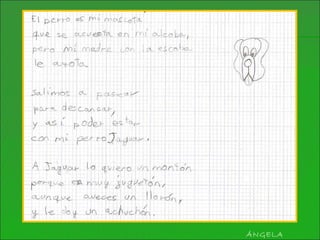 El perro es mi mascota
que se acuesta en mi alcoba,
pero mi madre con la escoba
le azota
salimos a pasear
para descansar,
y así poder estar
con mi perro Jaguar.
A Jaguar lo quiero un montón
porque es muy juguetón,
aunque aveces un llorón,
y le doy un achuchón.
ÁNGELA